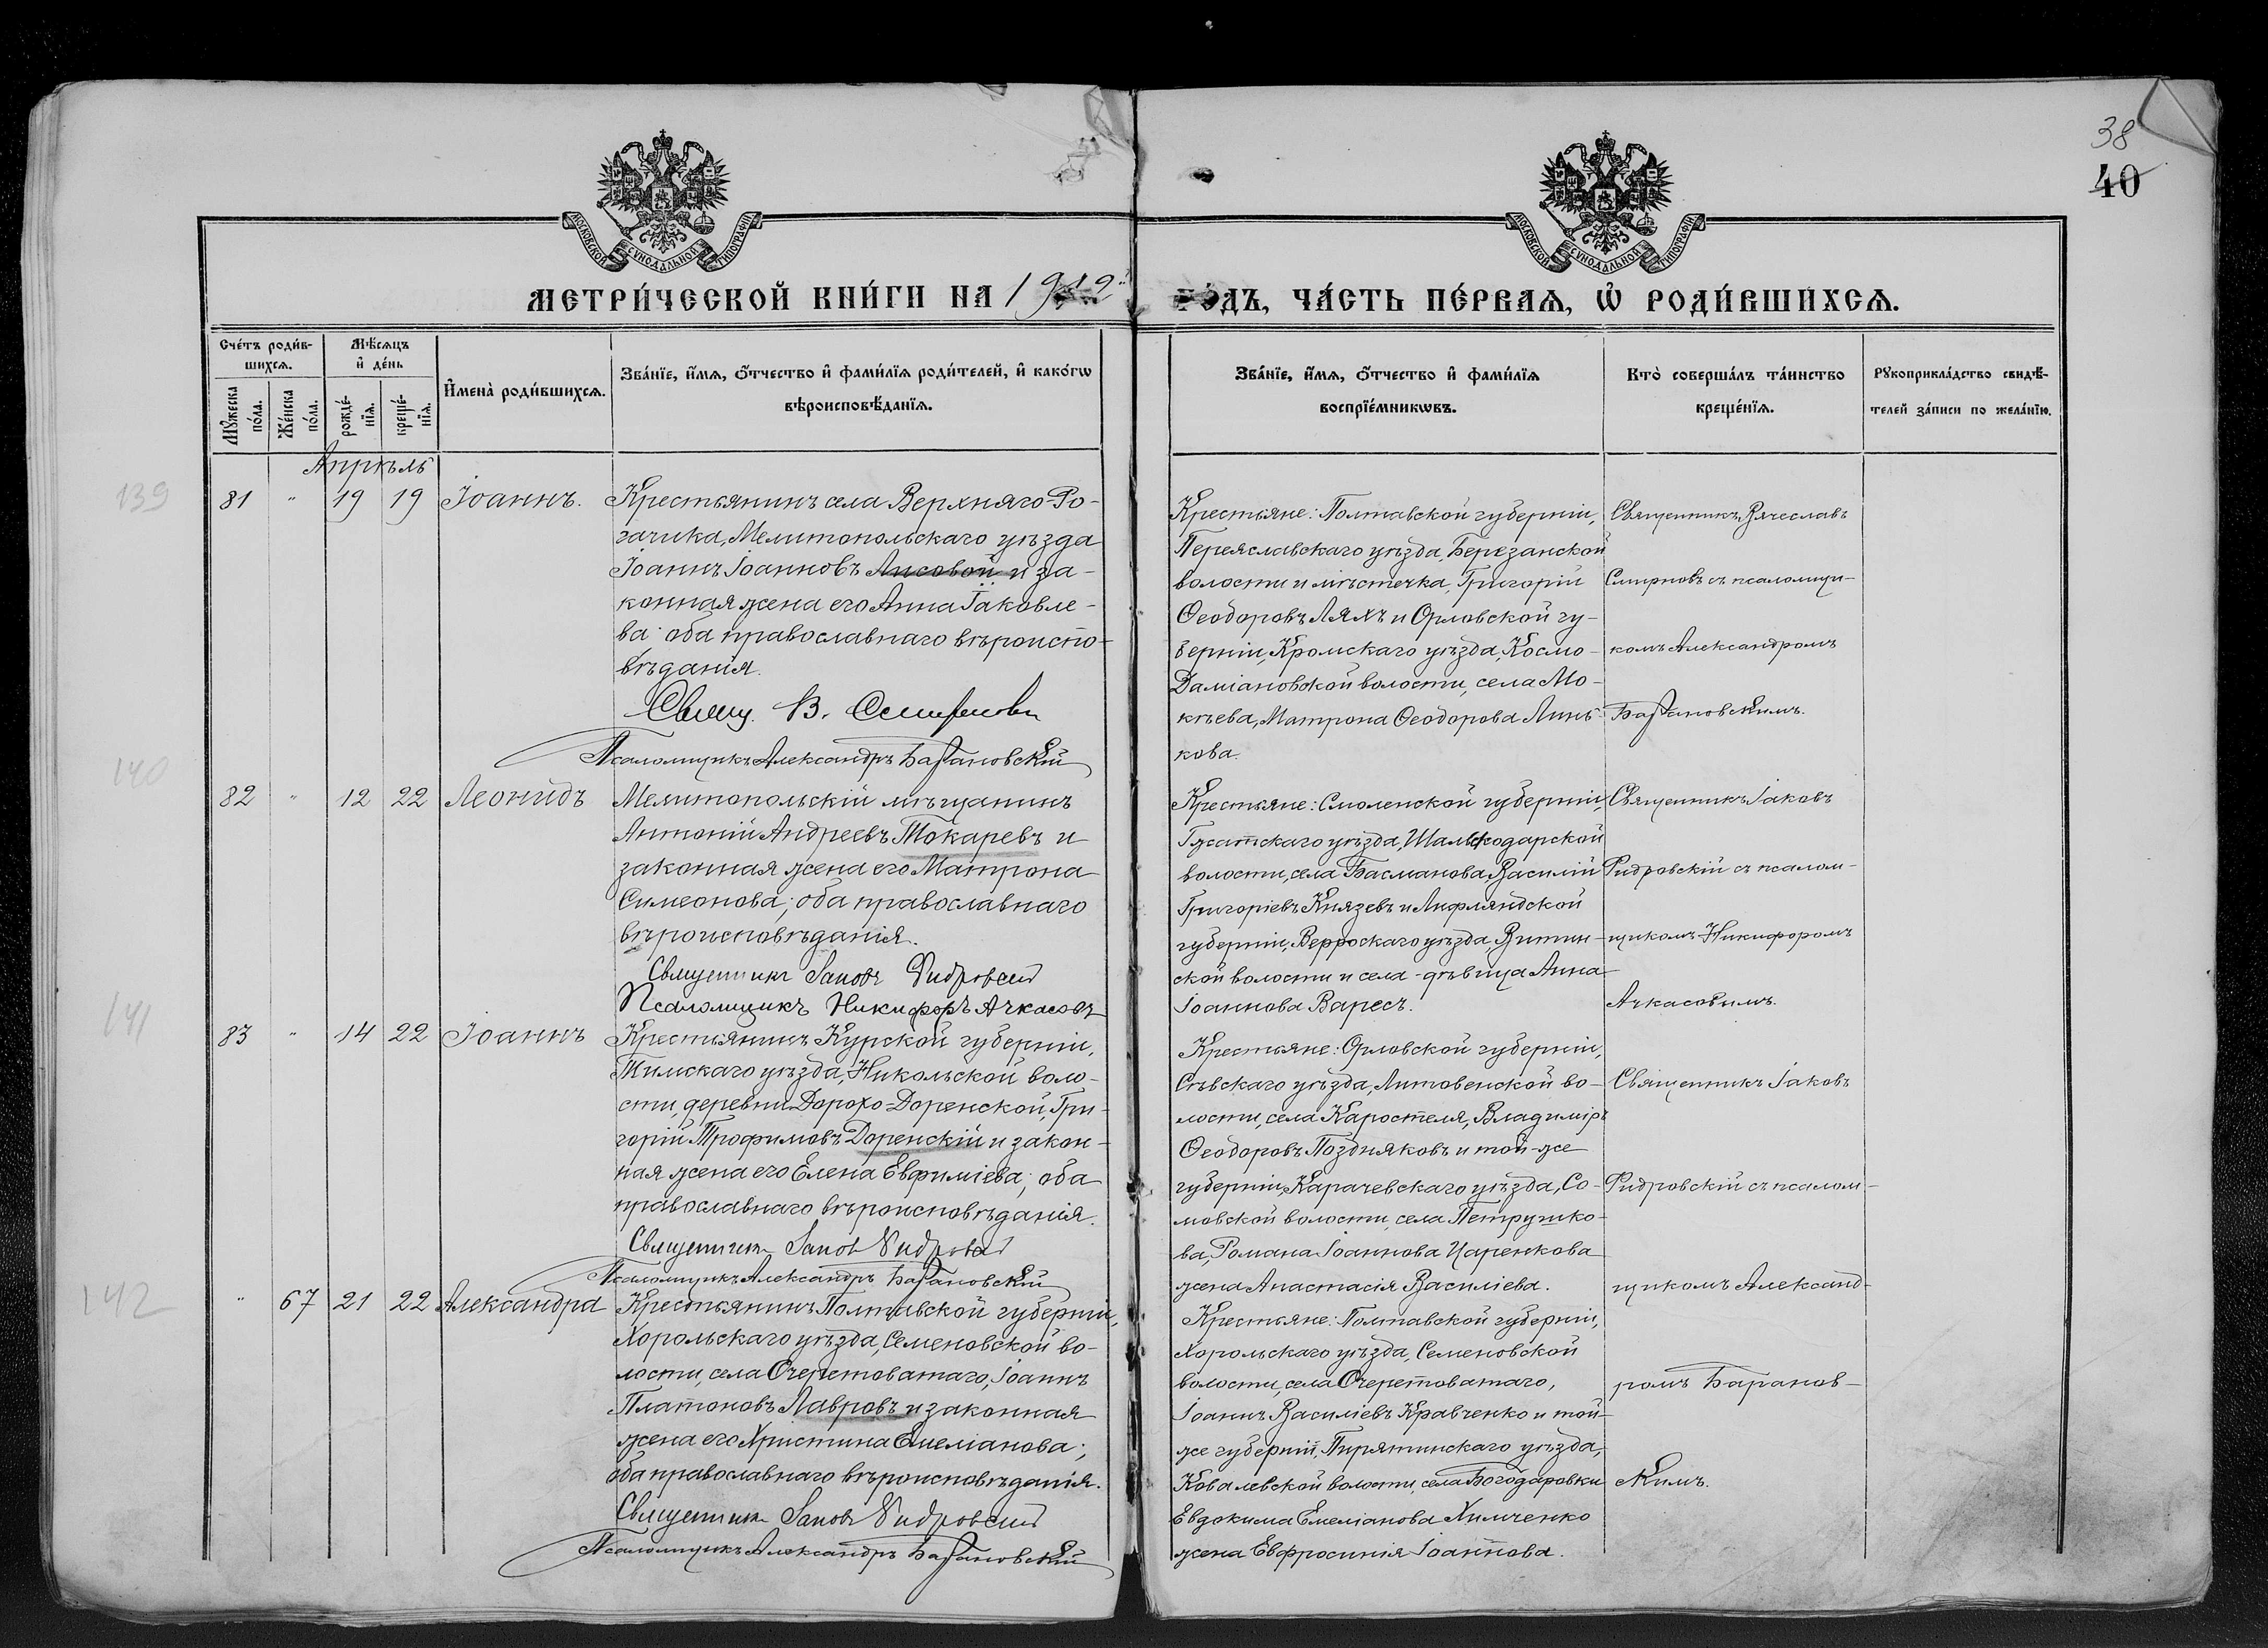 38
40
МОСКОВСКОЙ СѴНОДАЛЬНОЙ ТИПОГРАФІИ
МОСКОВСКОЙ СѴНОДАЛЬНОЙ ТИПОГРАФІИ
МЕТРИ́ЧЕСКОЙ КНИ́ГИ НА 1912
ГО́ДЪ, ЧА́СТЬ ПЕ́РВАѦ, Ѡ҆ РОДИ́ВШИХСѦ.
Сче́тъ роди́в-
шихсѧ.
Мꙋ́жеска
по́ла.
Же́нска
по́ла.
Мѣ́сѧцъ
и҆ де́нь
рожде́-
нїѧ.
креще́-
нїѧ.
И҆мена̀ роди́вшихсѧ.
Зва́нїе, и҆́мѧ, ѻ҆́тчество и҆ фами́лїѧ роди́телей, и҆ како́гѡ
вѣроисповѣ́данїѧ.
Зва́нїе, и҆́мѧ, ѻ҆́тчество и҆ фами́лїѧ
воспрїе́мникѡвъ.
Кто̀ соверша́лъ та́инство
креще́нїѧ.
Рꙋкоприкла́дство свидѣ́-
телей за́писи по жела́нїю.
Апрѣль
139
81 " 19 19 Іоаннъ.
Крестьянинъ села Верхняго-Ро-
гачика, Мелитопольскаго уѣзда
Іоаннъ Іоанновъ Лисовой и за-
конная жена его Анна Іаковле-
ва; оба православнаго вѣроиспо-
вѣданія.
Свящ. В. Смирновъ
Псаломщикъ Александръ Барановскій
Крестьяне: Полтавской губерніи,
Переяславскаго уѣзда, Березанской
волости и мѣстечка, Григорій
Ѳеодоровъ Ляхъ и Орловской гу-
берніи, Кромскаго уѣзда, Космо-
Даміановской волости, села Мо-
кѣева, Матрона Ѳеодорова Линь-
кова.
Священникъ Вячеславъ
Смирновъ съ псаломщи-
комъ Александромъ
Барановскимъ.
140
82 " 12 22 Леонидъ
Мелитопольскій мѣщанинъ
Антоній Андреевъ Токаревъ и
законная жена его Матрона
Симеонова; оба православнаго
вѣроисповѣданія.
Священникъ Іаковъ Фидровскій
Псаломщикъ Никифоръ Ачкасовъ
Крестьяне: Смоленской губерніи,
Гжатскаго уѣзда,
волости, села Басманова, Василій
Григоріевъ Князевъ и Лифляндской
губерніи, Верроскаго уѣзда, Витин-
ской волости и села - дѣвица Анна
Іоаннова Варесъ.
Священникъ Іаковъ
Фидровскій съ псалом-
щикомъ Никифоромъ
Ачкасовымъ.
141
83 " 14 22 Іоаннъ
Крестьянинъ Курской губерніи,
Тимскаго уѣзда, Никольской воло-
сти, деревни Дорохо-Доренской, Гри-
горій Трофимовъ Доренскій и закон-
ная жена его Елена Евфиміева; оба
православнаго вѣроисповѣданія.
Священникъ Іаковъ Фидровскій
Псаломщикъ Александръ Барановскій
Крестьяне: Орловской губерніи,
Сѣвскаго уѣзда, Литовенской во-
лости, села Каростеля, Владиміръ
Ѳеодоровъ Поздняковъ и той-же
губерніи, Карачевскаго уѣзда, Со-
мовской волости, села Петрушко-
ва, Романа Іоаннова Царенкова
жена Анастасія Василіева.
Священникъ Іаковъ
Фидровскій съ псалом-
щикомъ Александ-
ромъ Баранов-
скимъ.
142
" 67 21 22 Александра
Крестьянинъ Полтавской губерніи,
Хорольскаго уѣзда, Семеновской во-
лости, села Очеретоватаго, Іоаннъ
Платоновъ Лавровъ и законная
жена его Христина Емеліанова;
оба православнаго вѣроисповѣданія.
Священникъ Іаковъ Фидровскій
Псаломщикъ Александръ Барановскій
Крестьяне: Полтавской губерніи,
Хорольскаго уѣзда, Семеновской
волости, села Очеретоватаго,
Іоаннъ Василіевъ Кравченко и той-
же губерніи, Пирятинскаго уѣзда,
Ковалевской волости, села Богодаровки
Евдокима Емеліанова Химченко
жена Евфросинія Іоаннова.